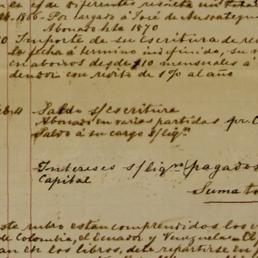 de diferentes
1866 - Por cargado a José de
Abonado hta 1870
Importe de su escritura de
la fecha á termino indefinido, su
en abonos desde $10 mensuales á
deudor con rédito de 1% al año
Saldo s/ escritura
Abonado en varias partidas pr. C
Saldo á su cargo s/ liqn
Intereses s/ liqn pagados
Capital
Suma
este rubro estan comprendidos los
de Colombia, el Ecuador y Venezuela
en los libros, debe repartirse